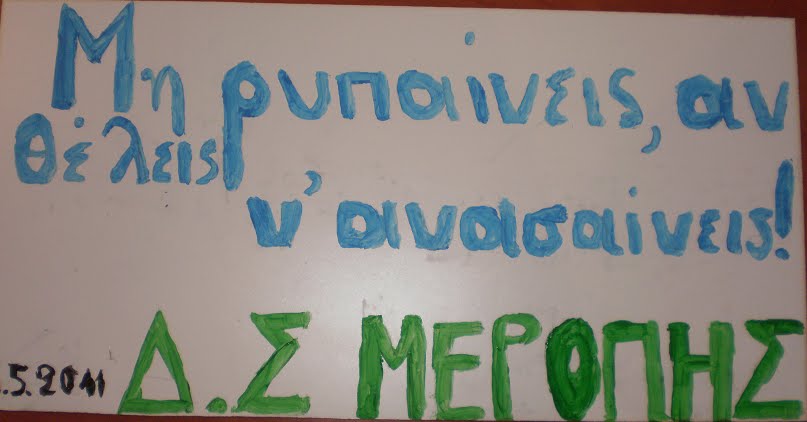 Μη ρυπαίνεις, αν
θέλεις
ν'ανασαίνεις!
.5.2011 Δ.Σ ΜΕΡΟΠΗΣ